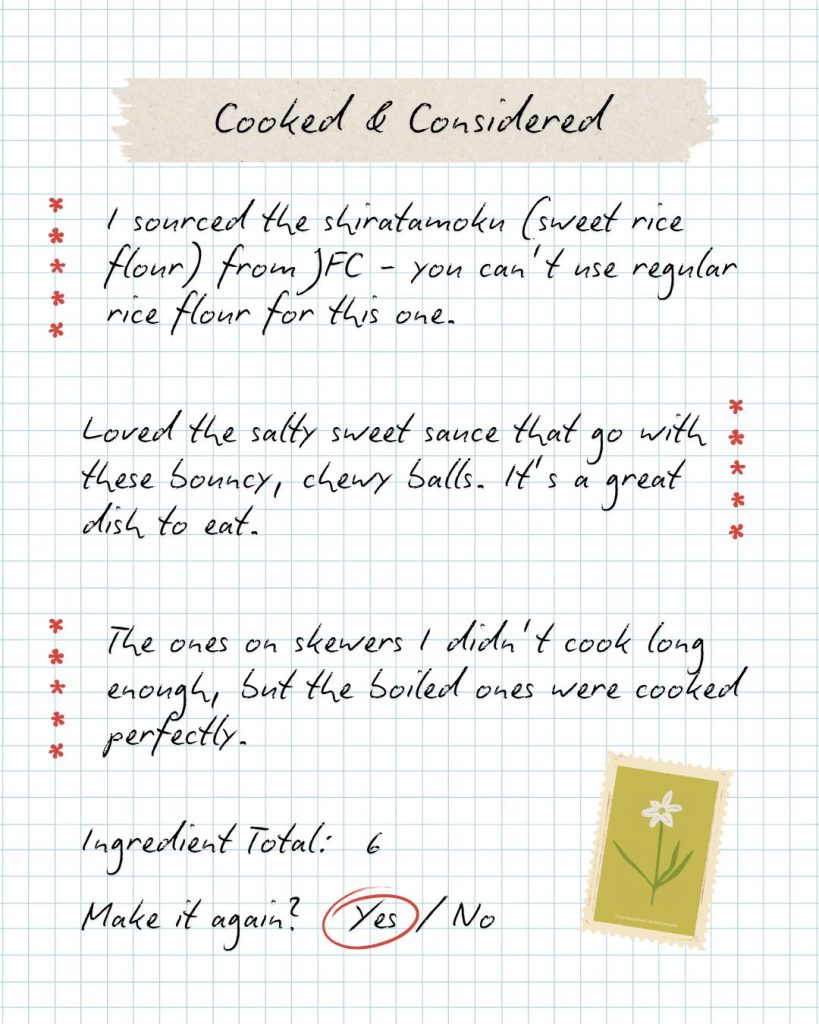 Cooked & Considered
I sourced the shiratamoku (sweet rice
flour) from JFC - you can't use regular
rice flour for this one.
Loved the salty sweet sauce that go with
these bouncy, chewy balls. It's a great
dish to eat.
The ones on skewers I didn't cook long
enough, but the boiled ones were cooked
perfectly.
Ingredient Total: 6
Make it again? Yes / No